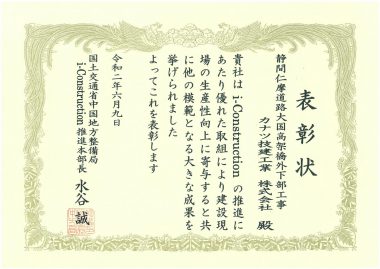 表彰状
静間仁摩道路大国高架橋外下部工事
カナツ技建工業 株式会社 殿
貴社は i-Construction の推進に
あたり優れた取組により建設現
場の生産性向上に寄与すると共
に他の模範となる大きな成果を
挙げられました
よってこれを表彰します
令和二年六月九日
国土交通省中国地方整備局
i-Construction 推進本部長 水谷 誠